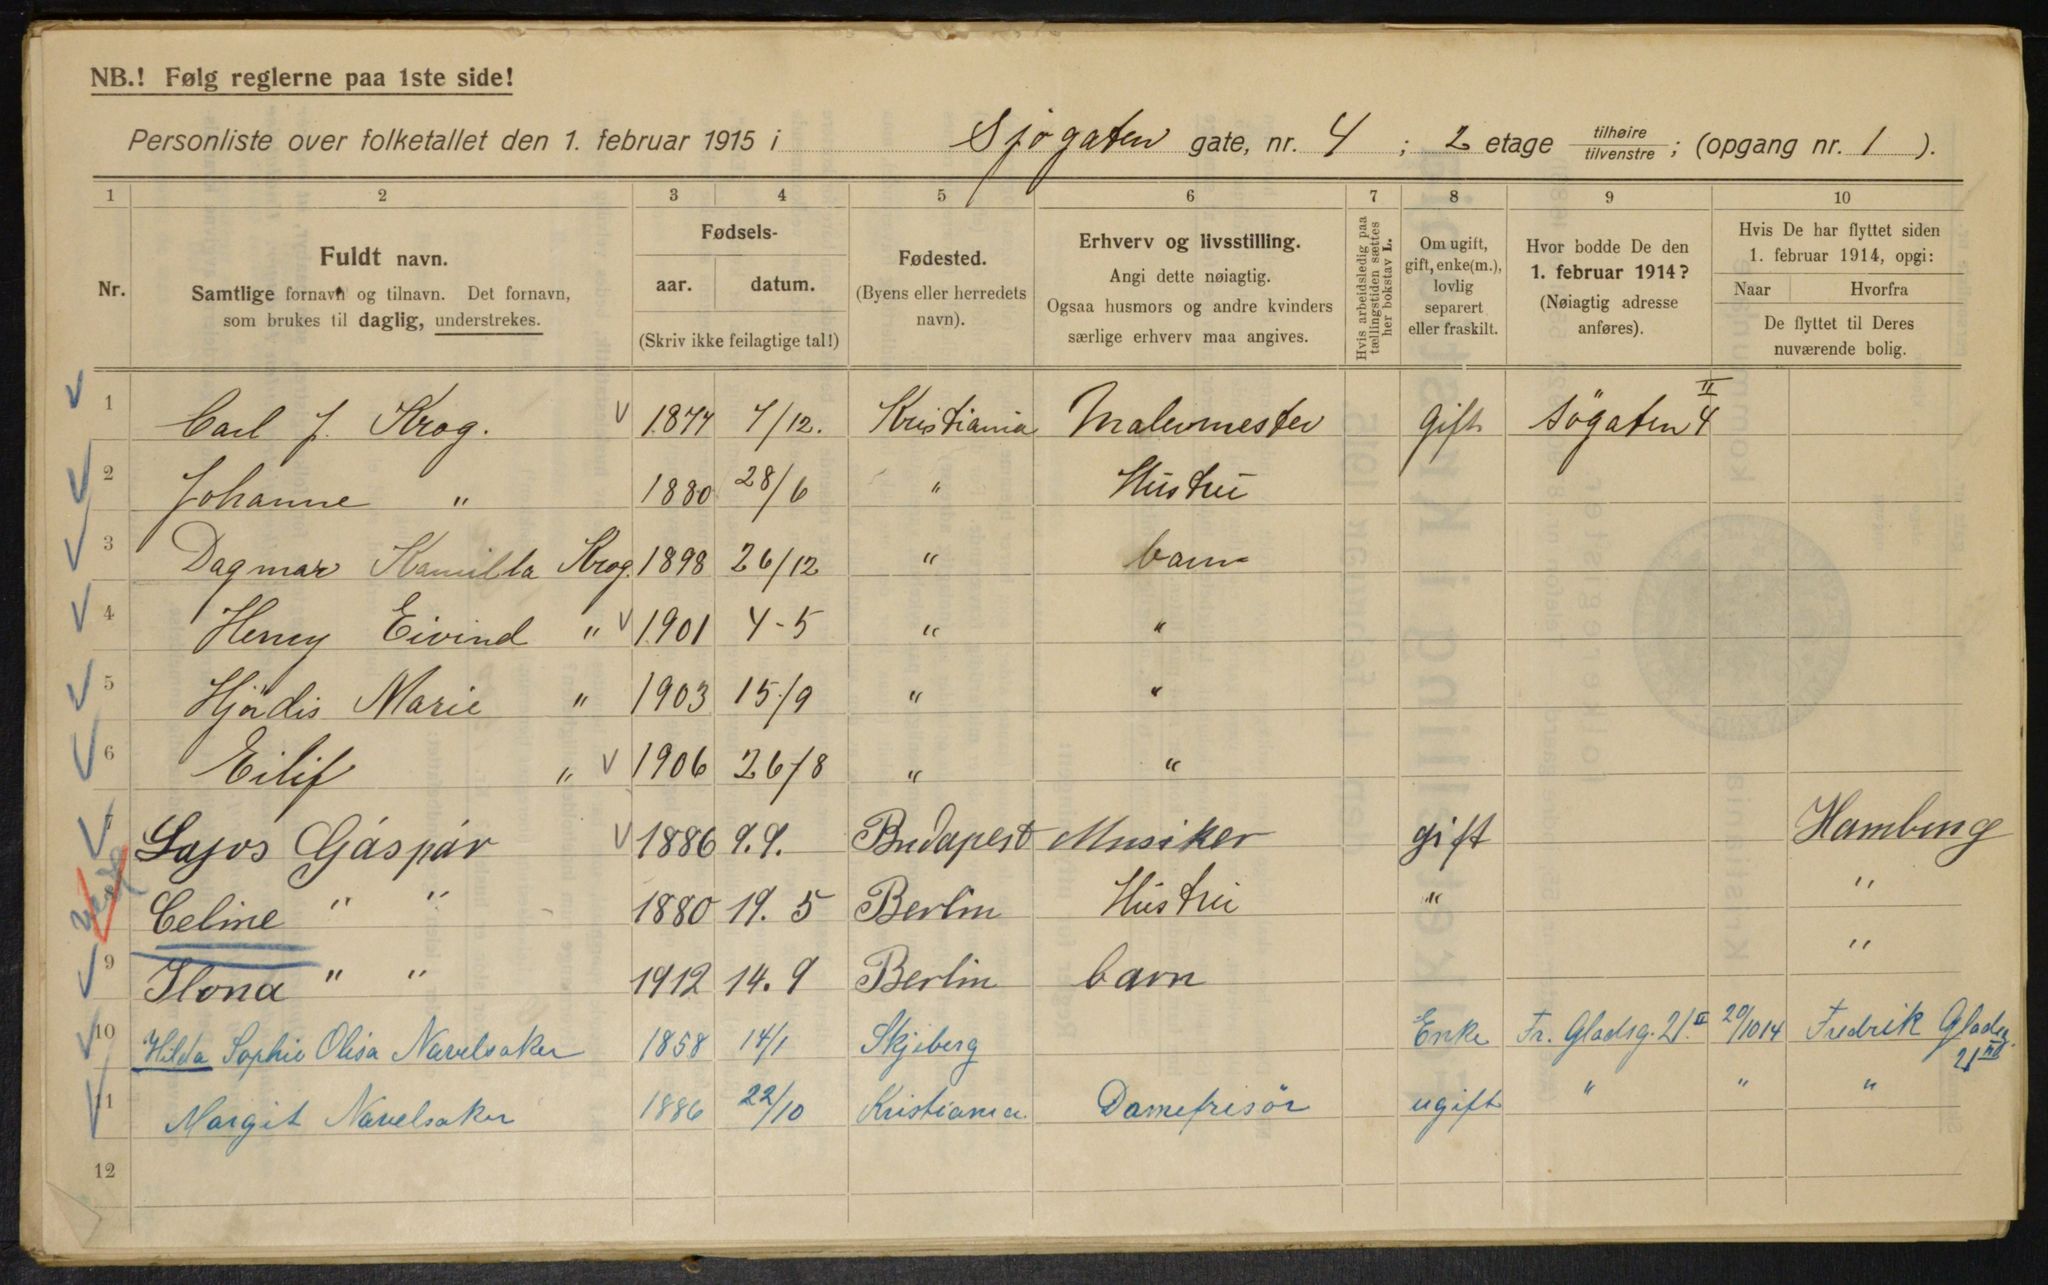 NB.! Følg reglerne paa 1ste side!
Personliste over folketallet den 1. februar 1915 i Sjøgaten gate, nr. 4 ; 2 etage tilhøire/tilvenstre ; (opgang nr. 1 ).
1 2 3 4 5 6 7 8 9 10
Nr.
Fuldt navn.
Samtlige fornavn og tilnavn. Det fornavn,
som brukes til daglig, understrekes.
Fødsels-
aar. datum.
(Skriv ikke feilagtige tal!)
Fødested.
(Byens eller herredets
navn).
Erhverv og livsstilling.
Angi dette nøiagtig.
Ogsaa husmors og andre kvinders
særlige erhverv maa angives.
Hvis arbeidsledig paa
tællingstiden sættes
her bokstav L.
Om ugift,
gift, enke(m.),
lovlig
separert
eller fraskilt.
Hvor bodde De den
1. februar 1914?
(Nøiagtig adresse
anføres).
Hvis De har flyttet siden
1. februar 1914, opgi:
Naar Hvorfra
De flyttet til Deres
nuværende bolig.
1 Carl J. Krog. 1877 7/12. Kristiania Malermester gift Søgaten 4 II
2 Johanne " 1880 28/6 " Hustru
3 Dagmar Kamilla Krog. 1898 26/12 " barn
4 Henry Eivind " 1901 4-5 " "
5 Hjördis Marie " 1903 15/9 " "
6 Eilif " 1906 26/8 " "
7 Lajos Gáspár 1886 9.9. Budapest Musiker gift Hamburg
Celine " " 1880 19. 5 Berlin Hustru " "
9 Ilona " " 1912 14. 9 Berlin barn "
10 Hilda Sophie Olisa Navelsaker 1858 14/1 Skjeberg Enke Fr. Gladsg. 21 II 20/10 14 Fredrik Gladsg. 21
11 Margit Navelsaker 1886 22/10 Kristiania Damefrisör ugift " " "
12